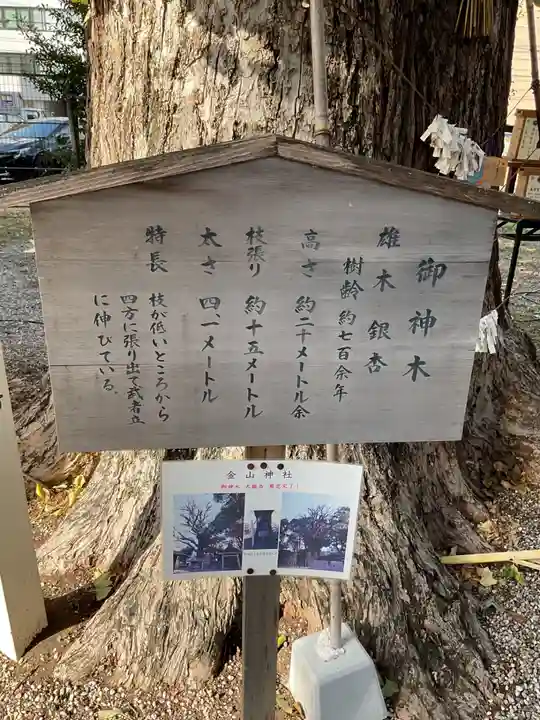 御神木
雄木 銀杏
樹齢約七百余年
高さ 約二十メートル余
枝張り 約十五メートル
太さ 四、一メートル
特長 枝が低いところから
四方に張り出て武者立
に伸びている。
金山神社